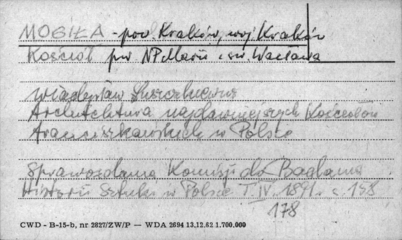 MOGIŁA - pow. Kraków, woj. Kraków
Kościół pw NPMarii i św. Wacława
Władysław Łuszczkiewicz
Architektura najdawniejszych Kościołów
Franciszkańskich w Polsce
Sprawozdania Komisji do Badania
Historii Sztuki w Polsce T. IV. 1891. s. 158
178
CWD - B-15-b, nr 2827/ZW/P — WDA 2694 13.12.62 1.700.000